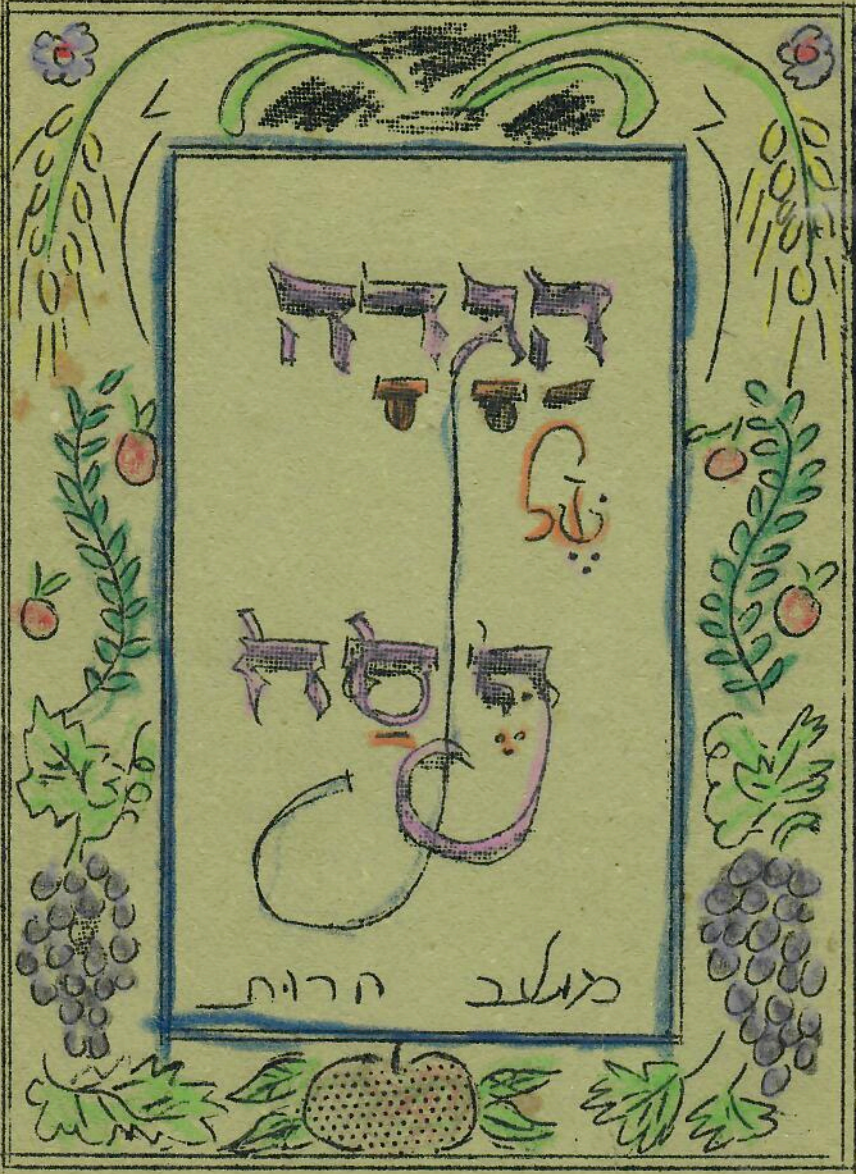 הגדה
של
פסח
מושב חרות